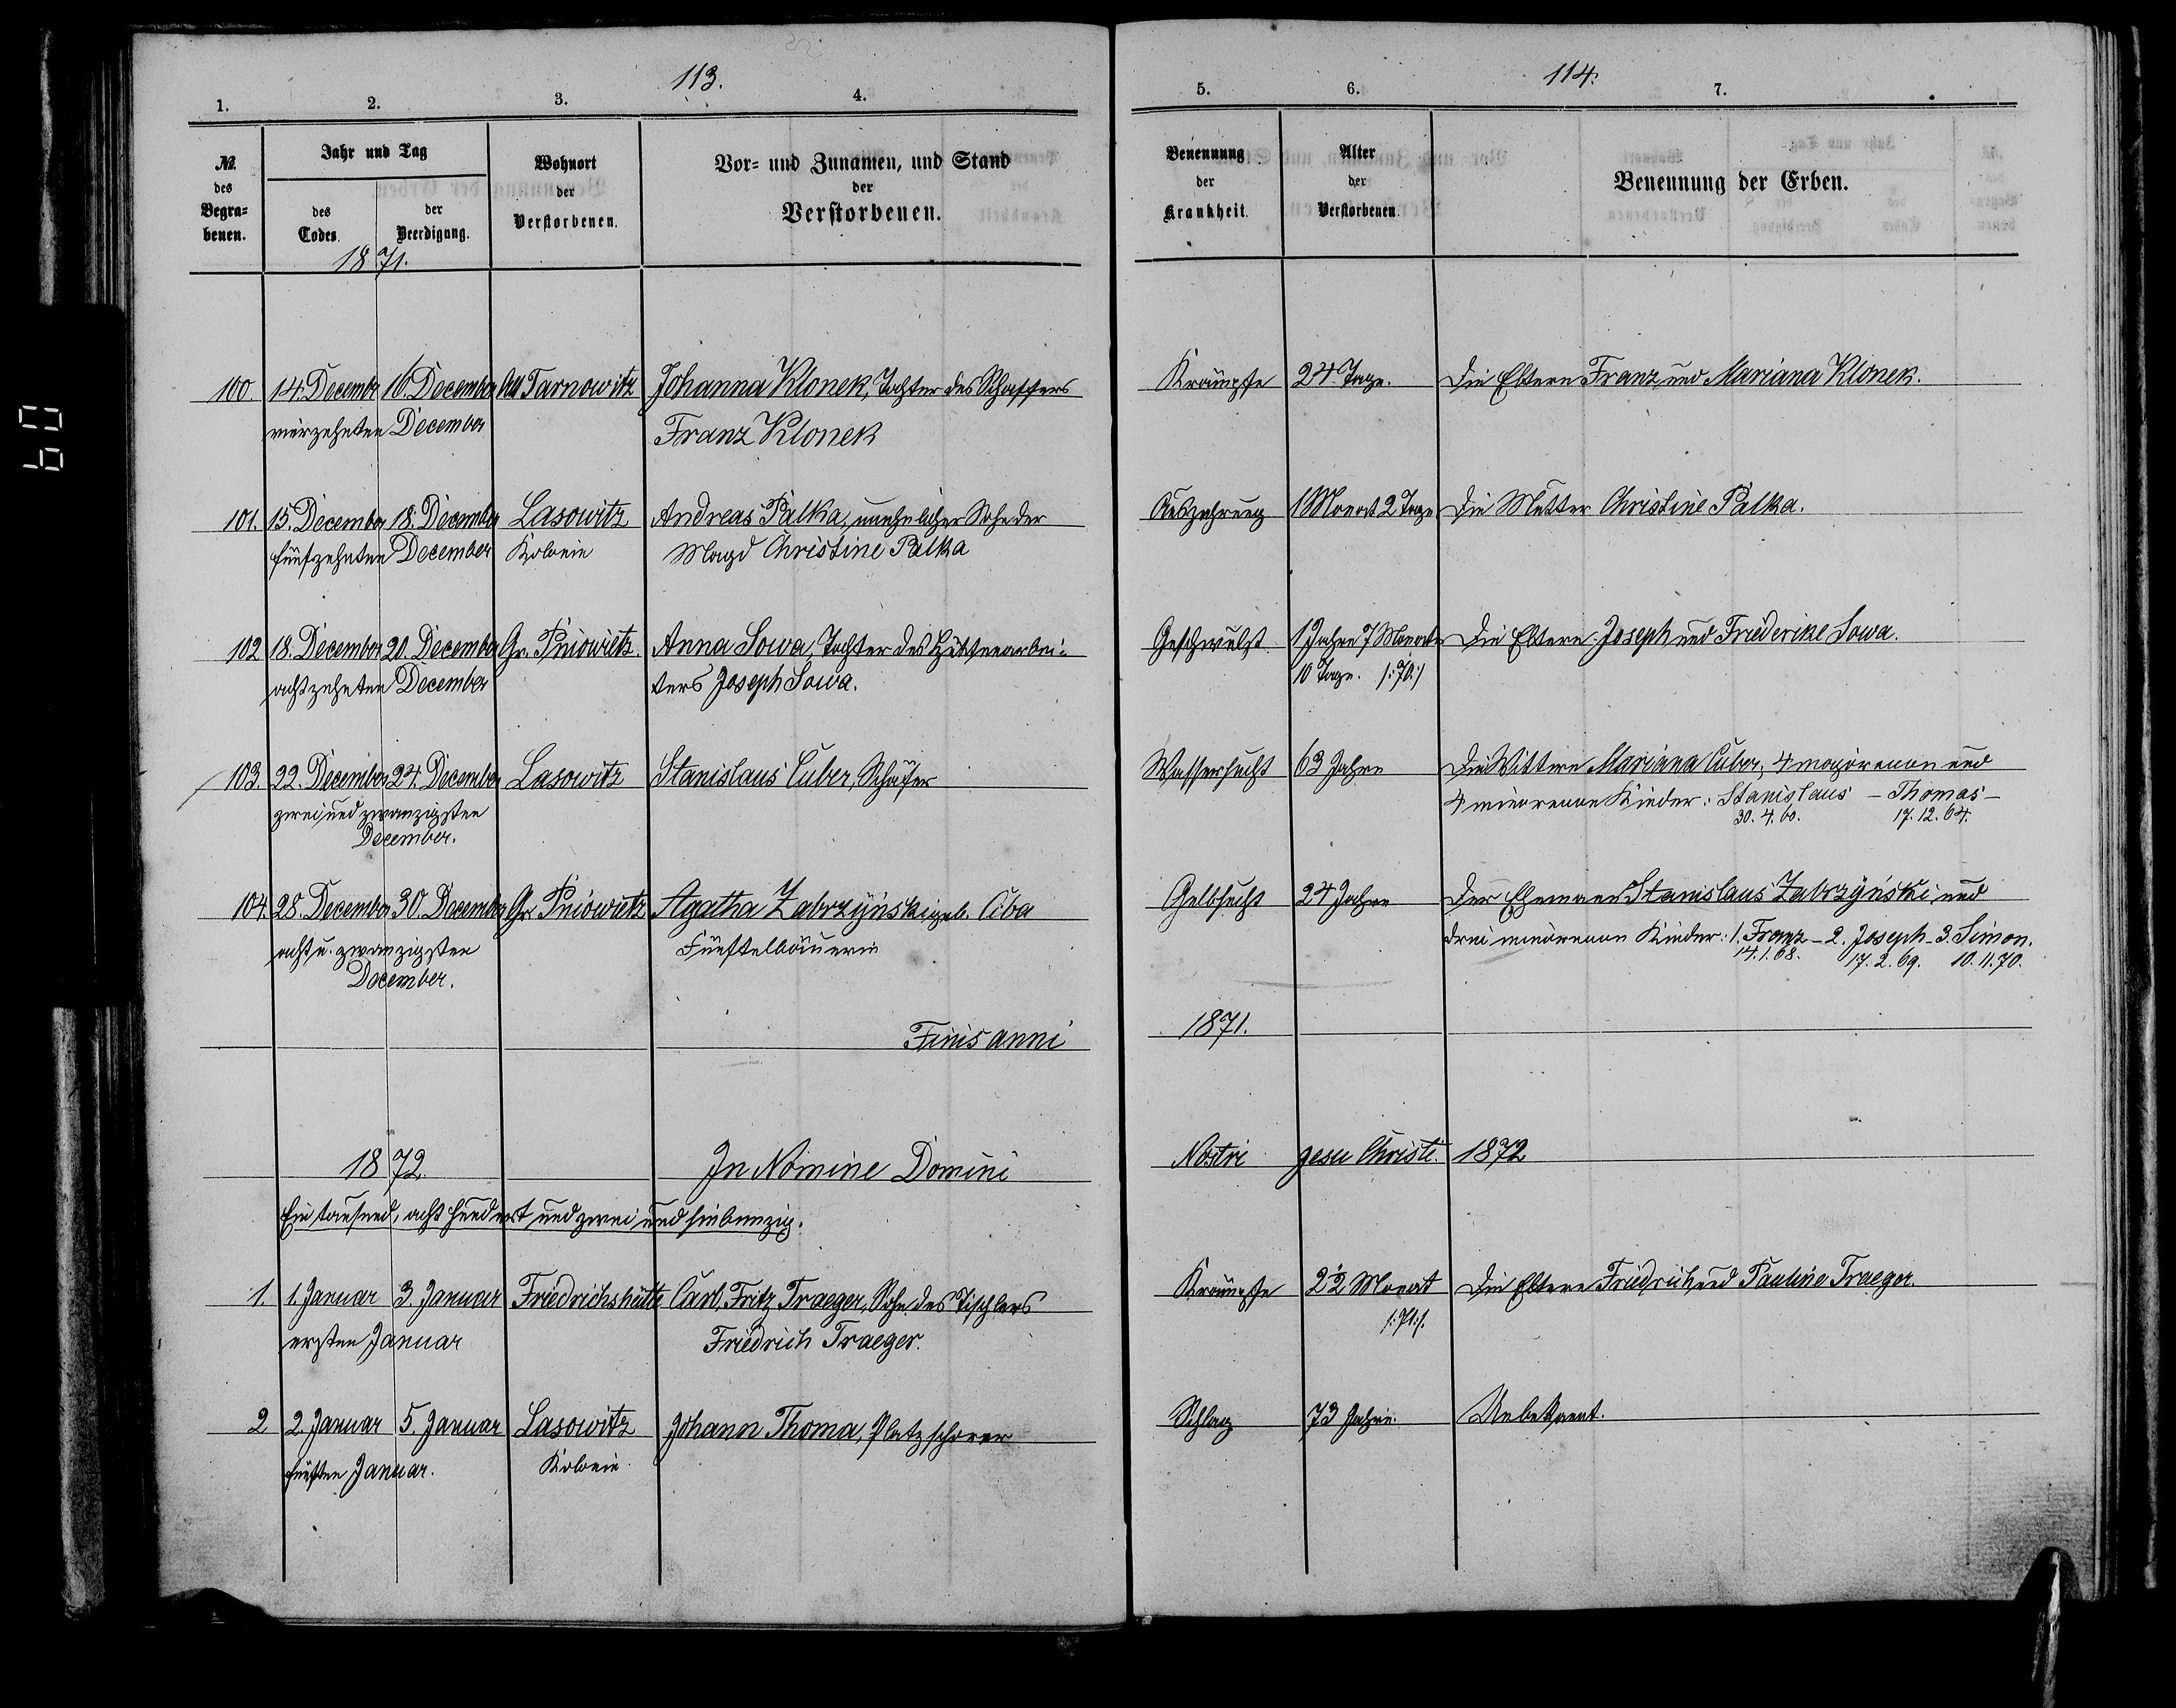 113.
1. 2. 3. 4.
№ des Begra=benen.
Jahr und Tag
des Todes. der Beerdigung.
Wohnort der Verstorbenen.
Vor= und Zunamen, und Stand der Verstorbenen.
1871.
100. 14. Decembr 16. December Alt Tarnowitz Johanna Klonek, Tochter des Schaffers
vierzehnten December Franz Klonek
101. 15. December 18. December Lasowitz Andreas Palka, unehelicher Sohn der
fünfzehnten December Kolonie Magd Christine Palka
102 18. December 20. December Gr. Pniowietz. Anna Sowa, Tochter des Hüttenarbei=
achtzehnten December ters Joseph Sowa.
103. 22. December 24. December Lasowitz Stanislaus Cuber, Schäfer
zwei und zwanzigsten
December.
104. 28. December 30. December Gr. Pniowietz Agatha Zabrzyński geb. Ciba
acht u. zwanzigsten Fünftelbäuerin
December.
Finis anni
1872. In Nomine Domini
Ein tausend, acht hundert und zwei und siebenzig.
1. 1. Januar 3. Januar Friedrichshütte Carl Fritz Traeger, Sohn des Tischlers
ersten Januar Friedrich Traeger.
2 2. Januar 5. Januar Lasowitz Johann Thoma, Platzschorer
fünften Januar. Kolonie
114.
5. 6. 7.
Benennung der Krankheit.
Alter der Verstorbenen.
Benennung der Erben.
Krämpfe 24 Tage. Die Eltern Franz und Mariana Klonek.
Auszehrung 1 Monat 2 Tage Die Mutter Christine Palka.
Geschwulst 1 Jahr 7 Monate Die Eltern Joseph und Friederike Sowa.
10 Tage. /:70:/
Wassersucht 63 Jahre Die Wittwe Mariana Cuber, 4 majorenne und
4 minorenne Kinder: Stanislaus – Thomas –
30. 4. 60. 17. 12. 64.
Gelbsucht 24 Jahre Der Ehemann Stanislaus Zabrzyński und
drei minorenne Kinder: 1. Franz – 2. Joseph – 3. Simon.
14. 1. 68. 17. 2. 69. 10. 11. 70.
1871.
Nostri Jesu Christi. 1872
Krämpfe 2 1/2 Monat Die Eltern Friedrich und Pauline Traeger.
/:71:/.
Schlag 73 Jahre. Unbekannt.
60